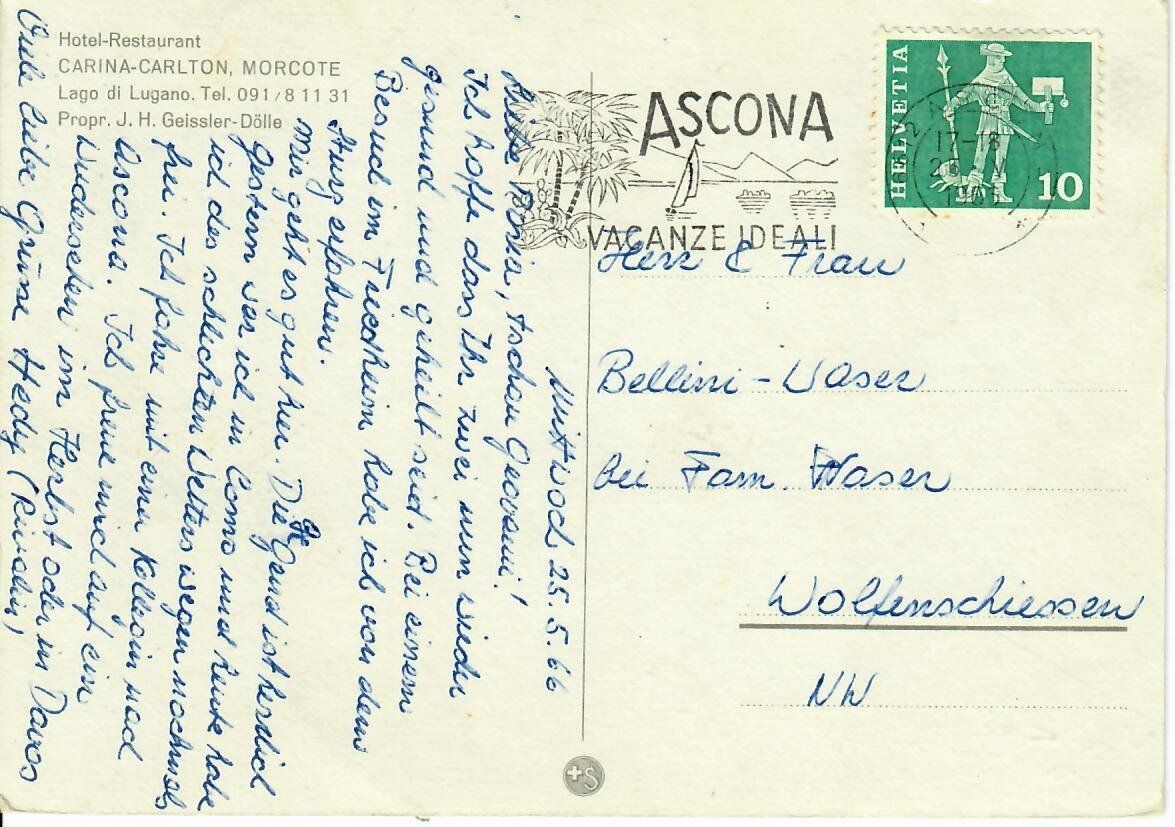 Hotel-Restaurant
CARINA-CARLTON, MORCOTE
Lago di Lugano. Tel. 091/8 11 31
Propr. J. H. Geissler-Dölle
ASCONA
VACANZE IDEALI
HELVETIA
10
17-18
Herr & Frau
Bellini-Waser
bei Fam. Waser
Wolfenschiessen
NW
+S
Mittwoch, 25.5.66
Liebe tschau Giovanni!
Ich hoffe dass Ihr zwei nun wieder
gesund und geheilt seid. Bei einem
Besuch im Friedheim habe ich von dem
erfahren.
Mir geht es gut hier. Die Gegend ist herrlich
Gestern war ich in Como und heute habe
ich des schlechten Wetters wegen nochmals
frei. Ich fahre mit einer Kollegin nach
Ascona. Ich freue mich auf ein
Wiedersehen im Herbst oder in Davos
Viele liebe Grüsse Hedy